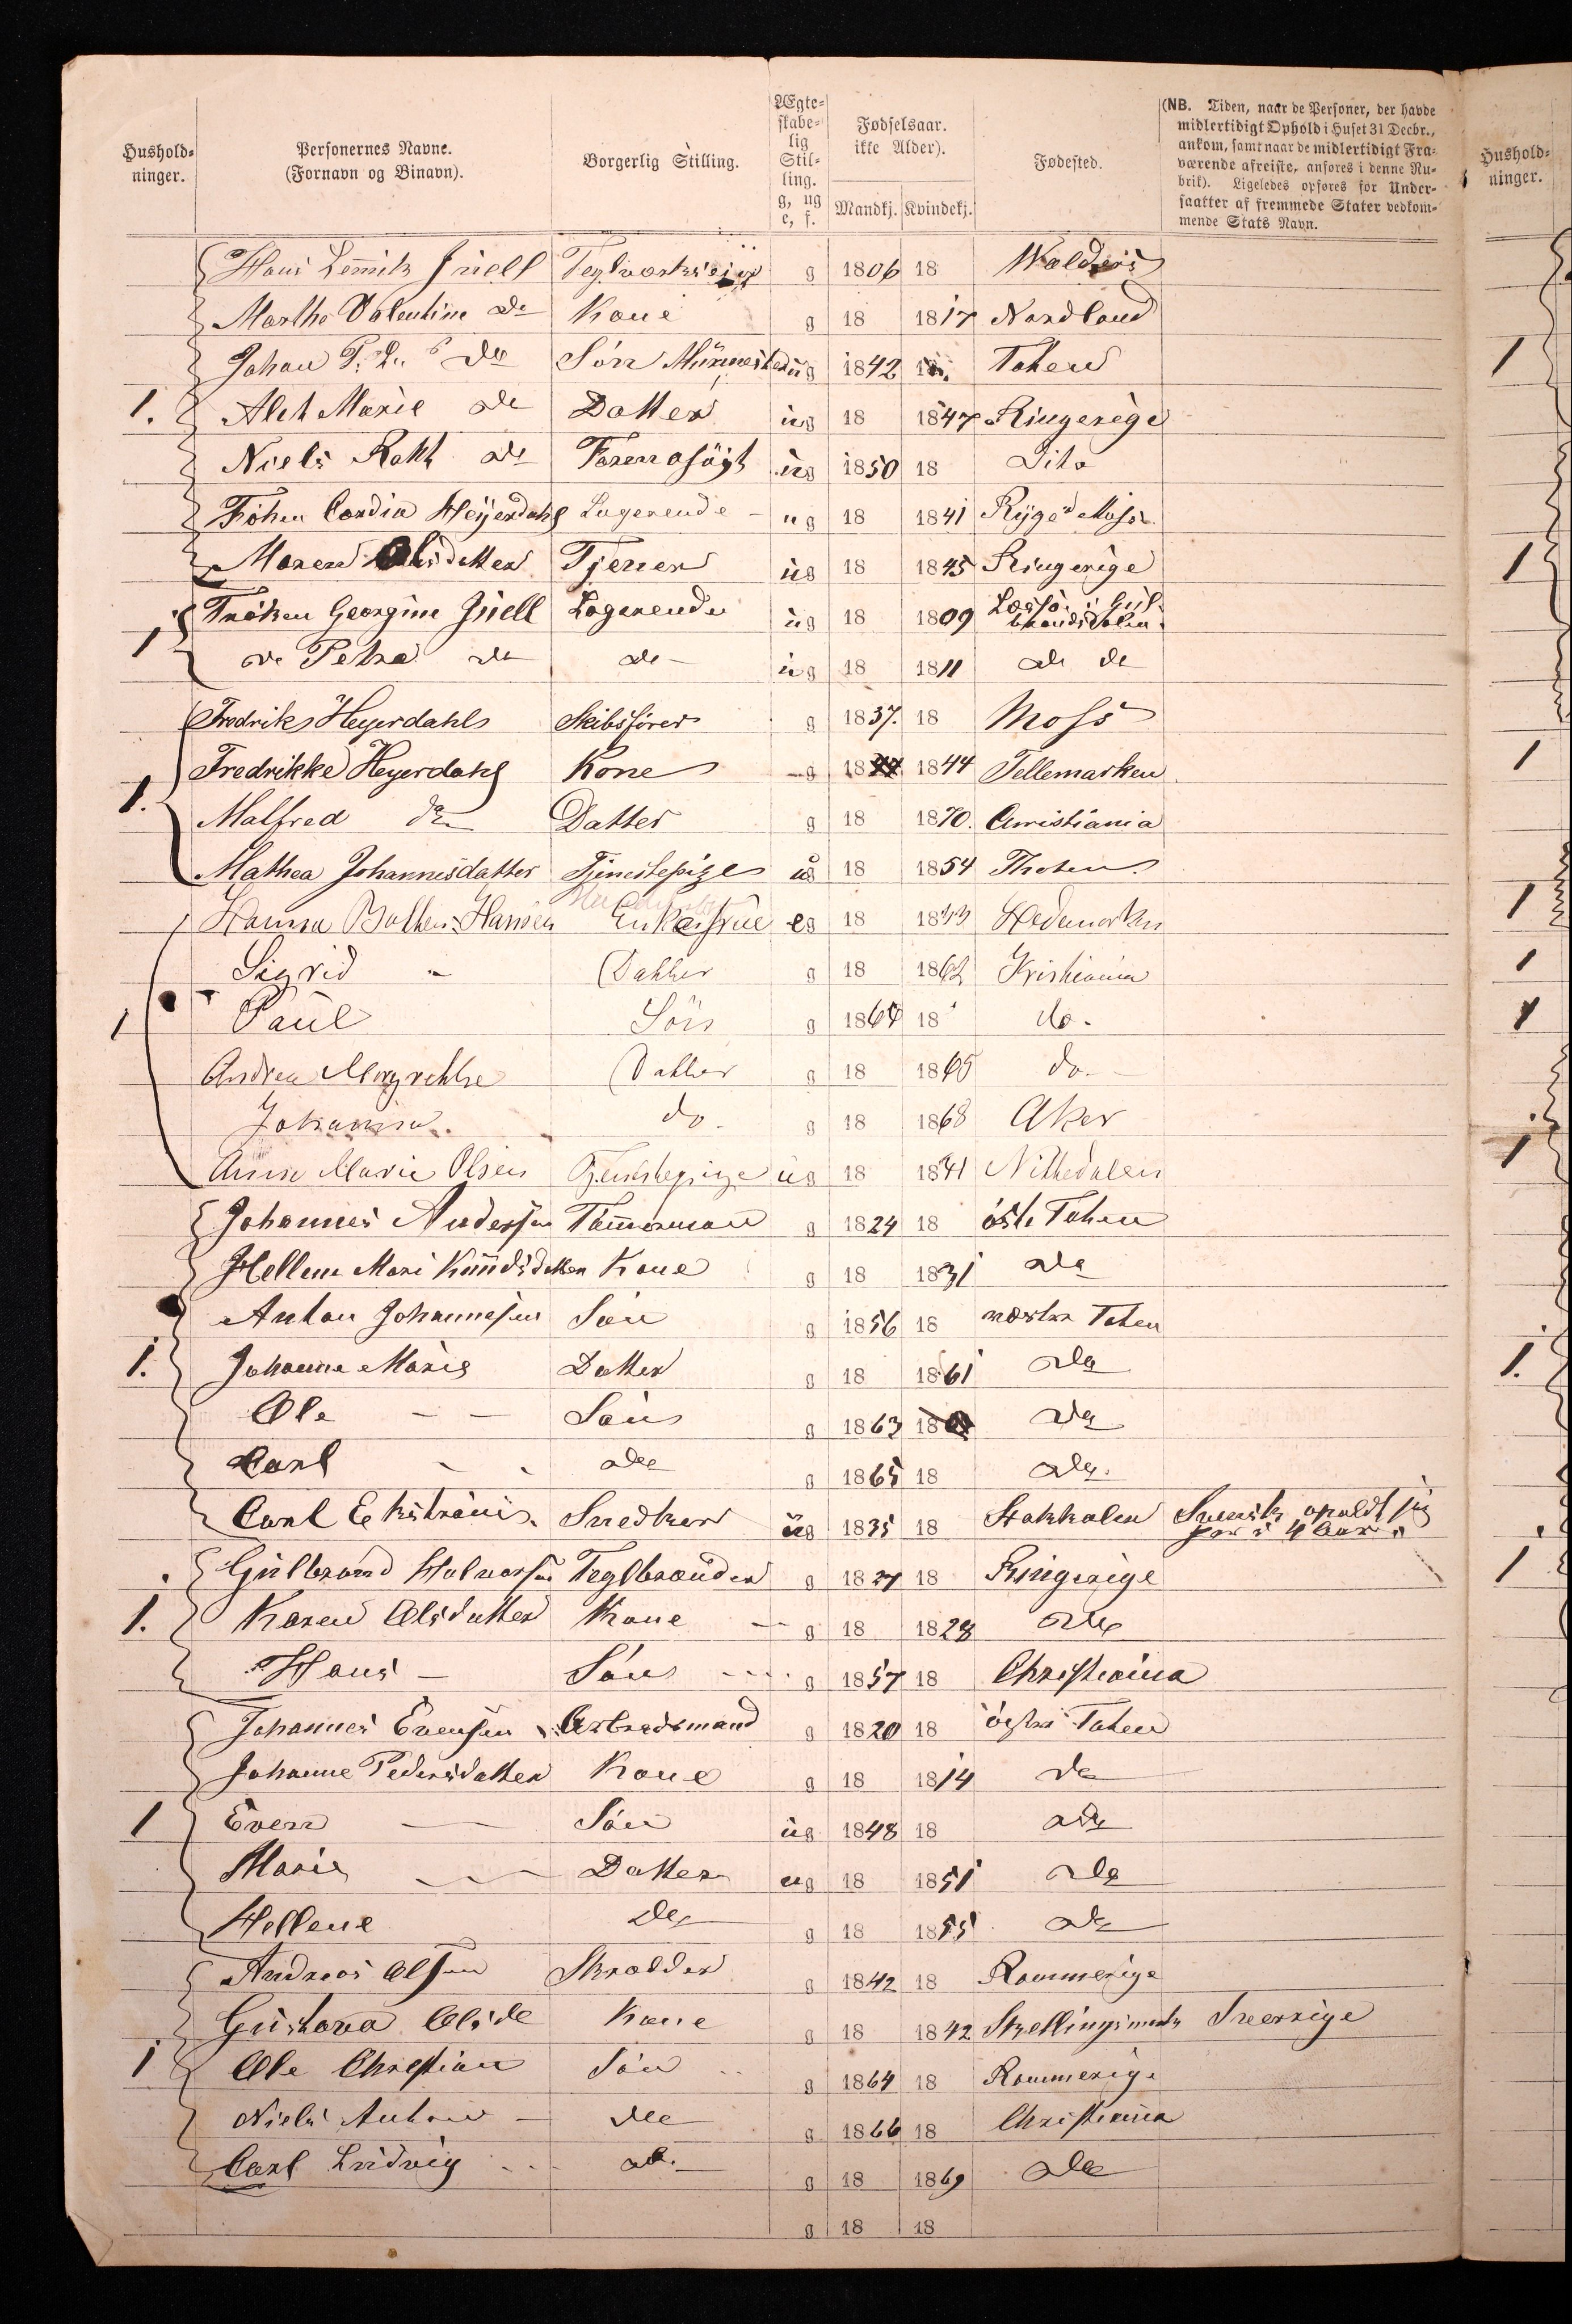 Hushold-
ninger.
Personernes Navne.
(Fornavn og Binavn).
Borgerlig Stilling.
Ægte-
skabe-
lig
Stil-
ling.
g, ug
e, f.
Fødselsaar.
ikke Alder).
Mandkj. Kvindekj.
Fødested.
(NB. Tiden, naar de Personer, der havde
midlertidigt Ophold i Huset 31 Decbr.,
ankom, samt naar de midlertidigt Fra-
værende afreiste, anføres i denne Ru-
brik). Ligeledes opføres for Under-
saatter af fremmede Stater vedkom-
mende Stats Navn.
Hushold-
ninger.
Hans Juell g 1806 18
Marthe Valentine de Kone g 18 1817 Nordland
Johan de Søn ug 1842 Toten
1. Alet Marie de Datter ug 18 1847 Ringerige
Niels de ug 1850 18 Dito
Cordia Heyerdahl Logerende ug 18 1841 Rygge Moss
Maren Olsdatter Tjener ug 18 1845 Ringerige
1 Frøken Georgine Juell Logerende ug 18 1809
de Petra de de ug 18 1811 de de
Fredrik Heyerdahl Skibsfører g 1837. 18 Moss
Fredrikke Heyerdahl Kone g 18 1844 Tellemarken
1. Malfred do Datter g 18 1870. Christiania
Mathea Johannesdatter Tjenestepige ug 18 1854 Thoten
Hanna Hansen Enkefrue eg 18 1833 Hedemarken
Sigrid Datter g 18 1862 Kristiania
1 Paul Søn g 1864 18 do.
Andrea Datter g 18 1865 do.
Johanna do. g 18 1868 Aker
Anna Marie Olsen Tjenestepige ug 18 1841 Nittedalen
Johannes Andersen Tømmermand g 1824 18 østre Toten
Hellene Mari Knudsdatter Kone g 18 1831 de
Anton Johannesen Søn g 1856 18 vestre Toten
1. Johanne Marie Datter g 18 1861 de
Ole Søn g 1863 18 de
Carl de g 1865 18 de
Carl Ekström Snedker ug 1835 18 Stokholm Svensk opholdt sig
her i 4 Aar.
Gulbrand Halvorsen Teglbrænder g 1827 18 Ringerige
1. Karen Olsdatter Kone g 18 1828 de
Hans Søn g 1857 18 Christiania
Johannes Evensen Arbeidsmand g 1820 18 østre Toten
Johanne Pedersdatter Kone g 18 1814 de
1 Even Søn ug 1848 18 de
Marie Datter ug 18 1851 de
Hellene de g 18 1855 de
Andreas Olsen Skrædder g 1842 18 Rommerige
Gustava Kone g 18 1842 Sverrige
1 Ole Christian Søn g 1864 18 Rommerige
Niels Anton de g 1866 18 Christiania
Carl Ludvig de g 18 1869 de
g 18 18